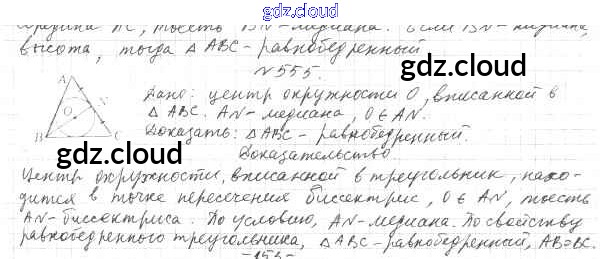 gdz.cloud
середина AC, тоесть BN-медиана. Если BN-медиана,
высота, тогда △ABC-равнобедренный
gdz.cloud
N555.
A
N
O
B
C
Дано: центр окружности O, вписанной в
△ABC. AN-медиана, O∈AN.
Доказать: △ABC-равнобедренный.
gdz.cloud
gdz.cloud
Доказательство
Центр окружности, вписанной в треугольник, нахо-
дится в точке пересечения биссектрис, O∈AN, тоесть
AN-биссектриса. По условию, AN-медиана. По свойству
равнобедренного треугольника, △ABC-равнобедренный, AB=BC.
gdz.cloud